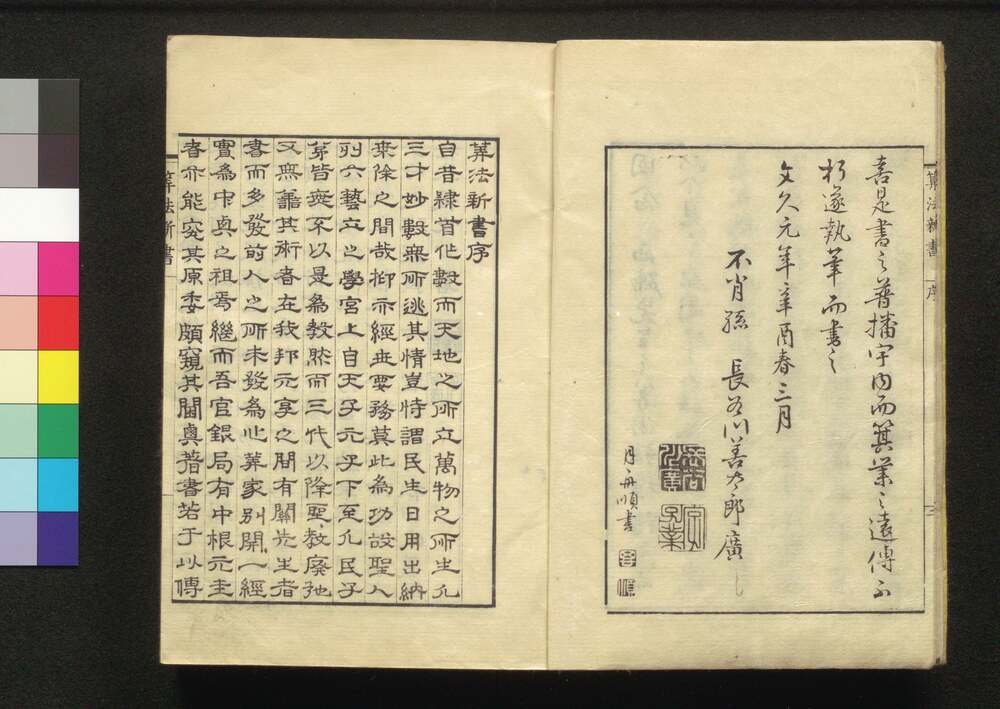 喜是書之普播宇内而箕業之遠傳不
朽遂執筆而書之
文久元年辛酉春三月
不肖孫 長谷川善太郎廣
月舟順書
算法新書 序
算法新書序
自昔隷首作數而天地之所立萬物之所生凡
三才妙數無所逃其情豈特謂民生日用出納
乗除之間哉抑亦經世要務莫此為功故聖人
列六藝立之學宮上自天子元子下至凡民子
弟皆無不以是為教然而三代以降聖教廢弛
又無講其術者在我邦元享之間有關先生者
書而多發前人之所未發為此算家別開一經
實為中興之祖焉繼而吾官銀局有中根元圭
者亦能究其原委頗窺其閫奥著書若干以傳
算法新書